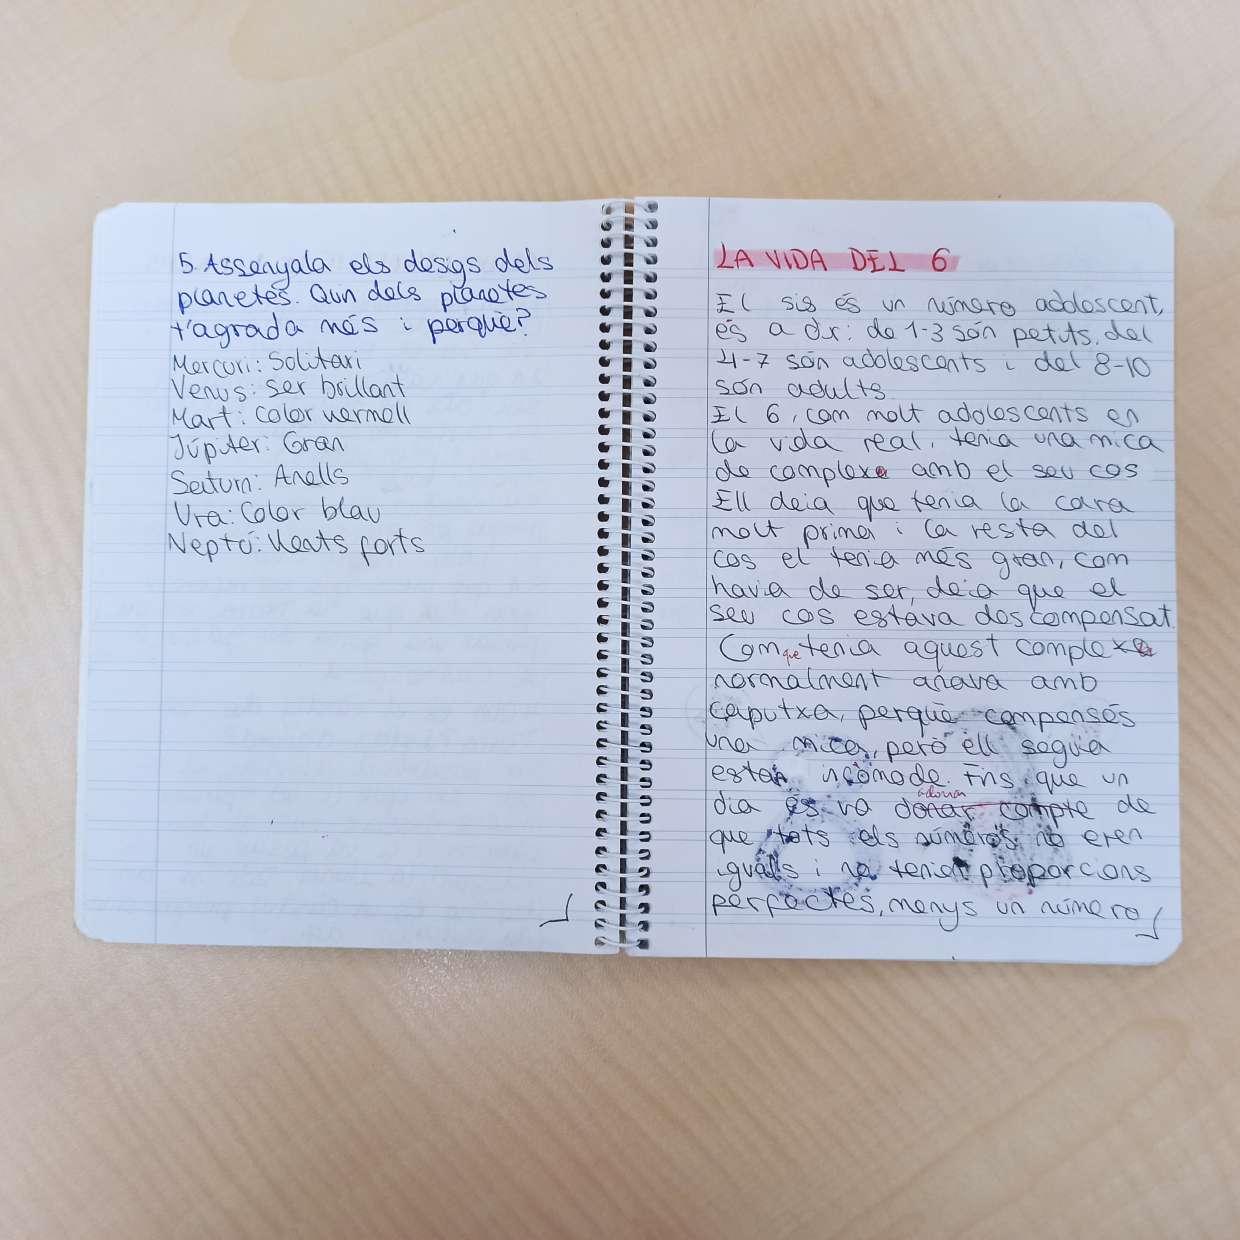 5. Assenyala els desigs dels
planetes. Quin dels planetes
t'agrada més i perquè?
Mercuri: Solitari
Venus: ser brillant
Mart: Color vermell
Júpiter: Gran
Saturn: Anells
Ura: Color blau
Neptú: Vents forts
LA VIDA DEL 6
El sis és un número adolescent,
és a dir: de 1-3 són petits, del
4-7 són adolescents i del 8-10
són adults.
El 6, com molt adolescents en
la vida real, tenia una mica
de complexe amb el seu cos
Ell deia que tenia la cara
molt prima i la resta del
cos el tenia més gran, com
havia de ser, deia que el
seu cos estava descompensat.
Com que tenia aquest complexe
normalment anava amb
caputxa, perquè compensés
una mica, però ell seguia
estan incòmode. Fins que un
dia es va adonar
donar compte de
que tots els números no eren
iguals i no tenien proporcions
perfectes, menys un número